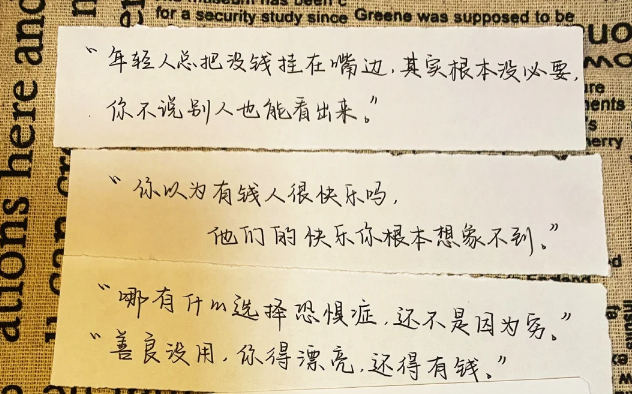 for a security study since Greene was supposed to be
ations here and
"年轻人总把没钱挂在嘴边,其实根本没必要,
你不说别人也能看出来。"
"你以为有钱人很快乐吗,
他们的快乐你根本想象不到。"
"哪有什么选择恐惧症,还不是因为穷。"
"善良没用,你得漂亮,还得有钱。"